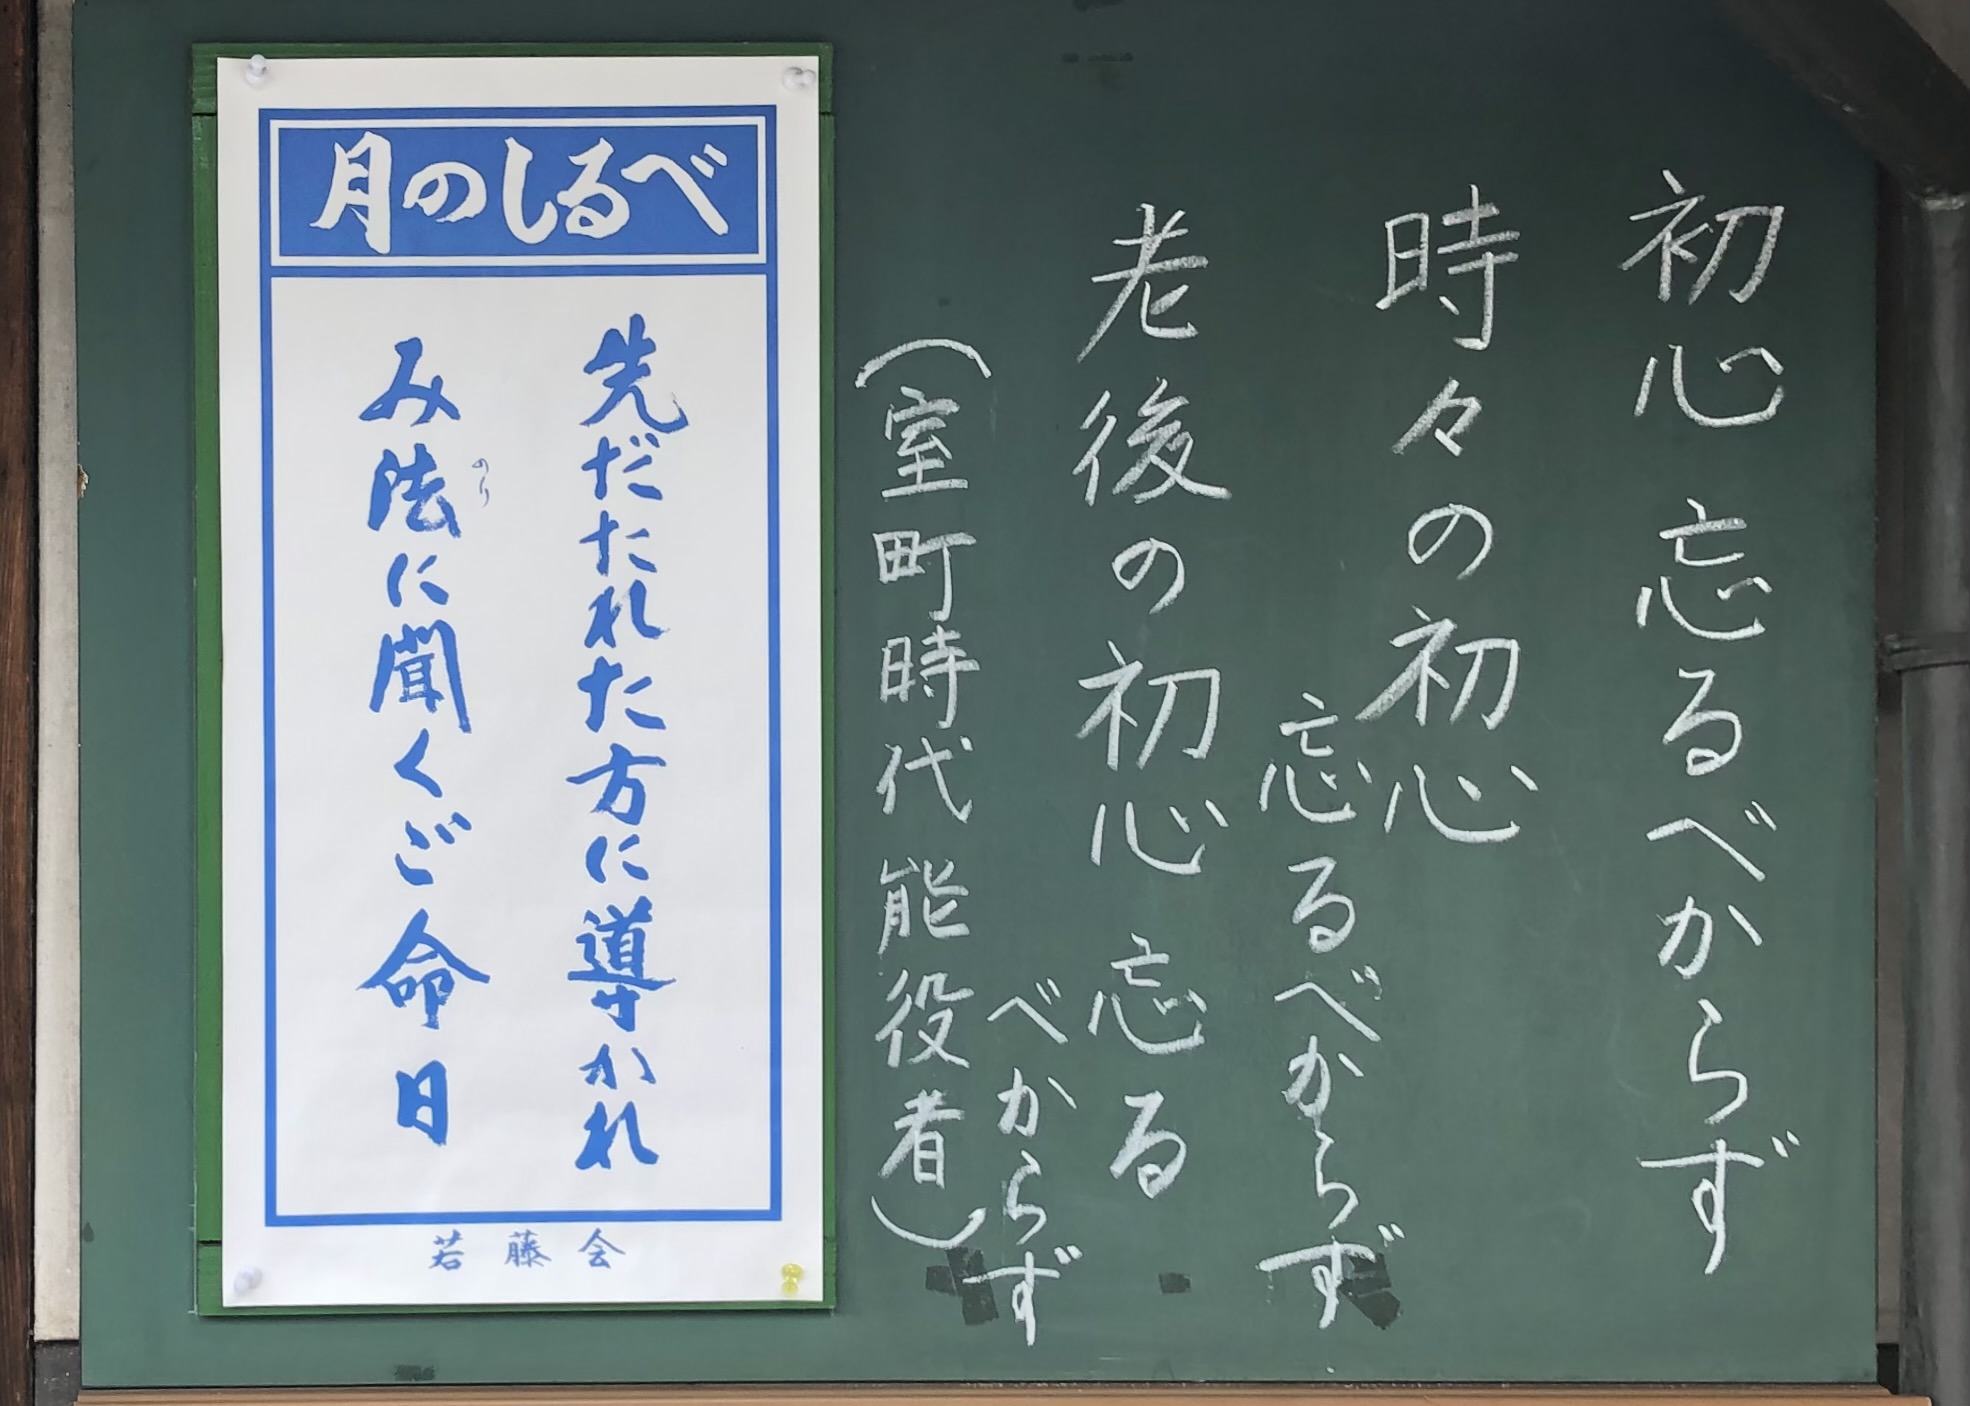 初心忘るべからず
時々の初心
忘るべからず
老後の初心忘る
べからず
(室町時代能役者)
月のしるべ
先だたれた方に導かれ
み法に聞くご命日
のり
若藤会